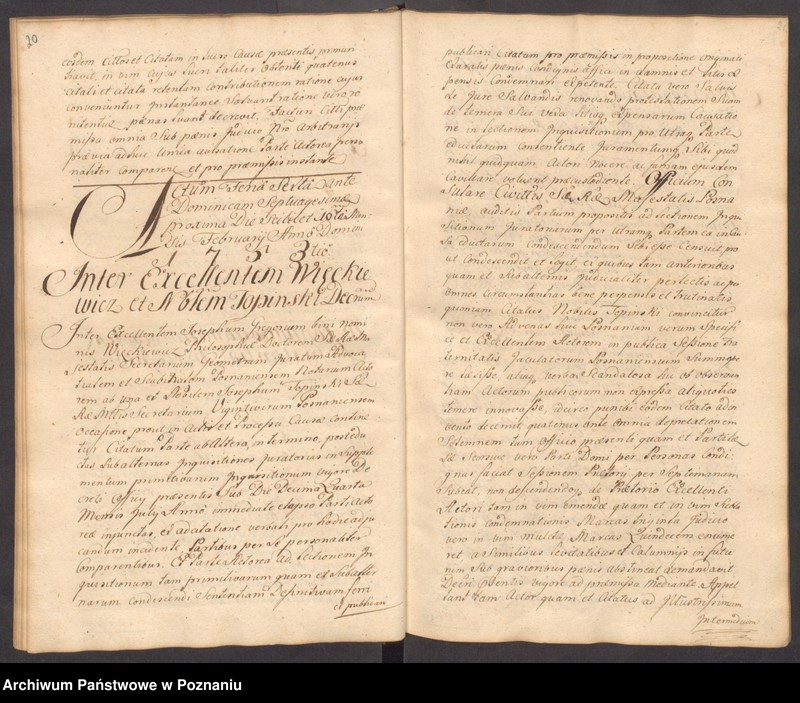 20
eosdem Cittos et Citatam in lucro Causæ præsentis, promeri
travit, in vim cujus lucri taliter obtenti quatenus
Citati et Citata retentam contributionem ratione cujus
conveniuntur Instantiæ solvant ratione vero re
nitentiæ pænas luant decrevit,
missa omnia Sub pænis Judicio Pñō Arbitrans
prævia adhuc Unica avisatione Parte Actorea perso
naliter comparente et pro præmissis instante
Actum Feria Sexta ante
Dominicam Septuagesimæ
proxima Die Scilicet 16ta Men
sis Februarij Anno Domini
1753tio
Inter Excellentem Więckie
wicz et Nobilem Topinski Decrum
Inter Excellentem Josephum Gregorium bini Nomi
nis Więckiewicz Philosophiæ Doctorem Sæ Ræ Ma
jestatis Secretarium Geometram juratum Advoca
tialem et Scabinalem Posnaniensem Notarium Acto
rem ab una et Nobilem Josephum Topinski Sæ
Ræ Mttis Secretarium Vigintivirum Posnaniensem
Occasione prout in Actis et Processu Causæ contine
tur Citatum Parte ab Altera, in termino, post edu
ctas Subalternas Inquisitiones juratorias in Supple
mentum primitivarum Inquisitionum vigore De
creti Officij præsentis Sub Die Decima Quarta
Mensis Julij Anno immediate elapso Parti Acto
reæ injunctas, ex ad citatione verbali pro hodie adju
candum incidente Partibus per se personaliter
comparentibus. Et Parte Actorea ad lectionem In
quisitionum tam primitivarum quam et Subalter
narum condescendi Sententiam Definitivam ferri
et publicari
publicari Citatum pro præmissis in propositione originali
exaratis pænis condignis affici in damnis et litis ex
pensis Condemnari expetente. Citata vero Salvis
de Jure Salvandis renovando protestationem Suam
de temera Sui vexa litisq Expensarum Causatio
ne in lectionem Inquisitionum pro Utraq Parte
eductarum consentiente Juramentumq Sibi quod
nihil quidquam Actori nocere ac famam ejusdem
Cavillare voluerit præcustodiente. Officium Con
sulare Civittis Sæ Ræ Majestatis Posna
niæ, auditis Partium propositis ad lectionem Inqui
sitionum Juratoriarum per Utramq Partem ex
ta eductarum condescendendum Sibi esse Censuit pro
ut Condescendit et legit, ex quibus tam anterioribus
quam et Subalternis judicialiter perlectis ac per
omnes circumstantias bene perpensis et trutinatis,
quoniam Citatus Nobilis Topinski convincitur
non vero
ce et Excellentem Actorem in publica Sessione Fra
ternitatis Jaculatorum Posnaniensium Summope
re læsisse, aliaq verba Scandalosa hic ob observan
tiam Actorum publicorum non expressa aliquoties
temere innovasse, idcirco puniri eodem Citato adin
vento decernit quatenus ante omnia deprecationem
Solennem tam Officio præsenti quam et Partilæ
sæ Seorsive vero Parti Domi per Personas Condi
gnas faciat Sessionem Prætorij per Septimanam
subeat, non descendendoq de Prætorio Excellenti
Actori tam in vim emendæ quam et in vim
tionis condemnationis Marcas Triginta Judicio
vero in vim mulctæ Marcas Quindecem enume
ret a Similibus levitatibus et Calumnijs in futu
rum Sub gravioribus pænis abstineat demandavit
Decri pñtis vigore ad præmissa mediante. Appel
lant tam Actor quam et Citatus ad Illustrissimum